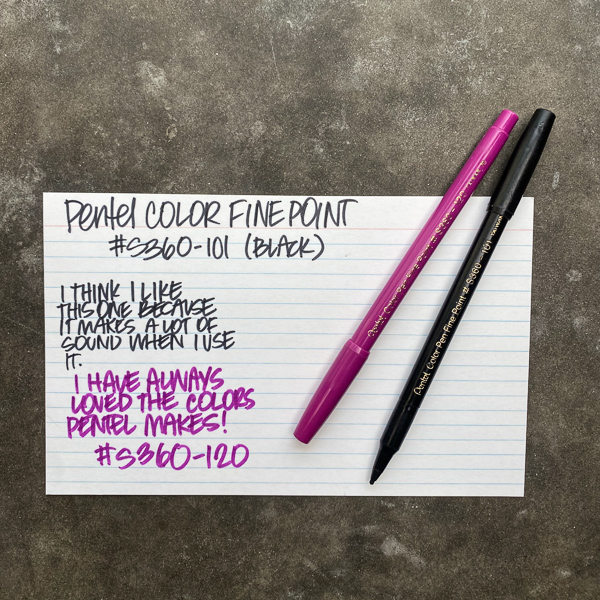 Pentel COLOR FINE POINT
#S360-101 (BLACK)
I THINK I LIKE
THIS ONE BECAUSE
IT MAKES A LOT OF
SOUND WHEN I USE
IT.
I HAVE ALWAYS
LOVED THE COLORS
PENTEL MAKES!
#S360-120
Pentel Color Pen Fine Point # S360-101